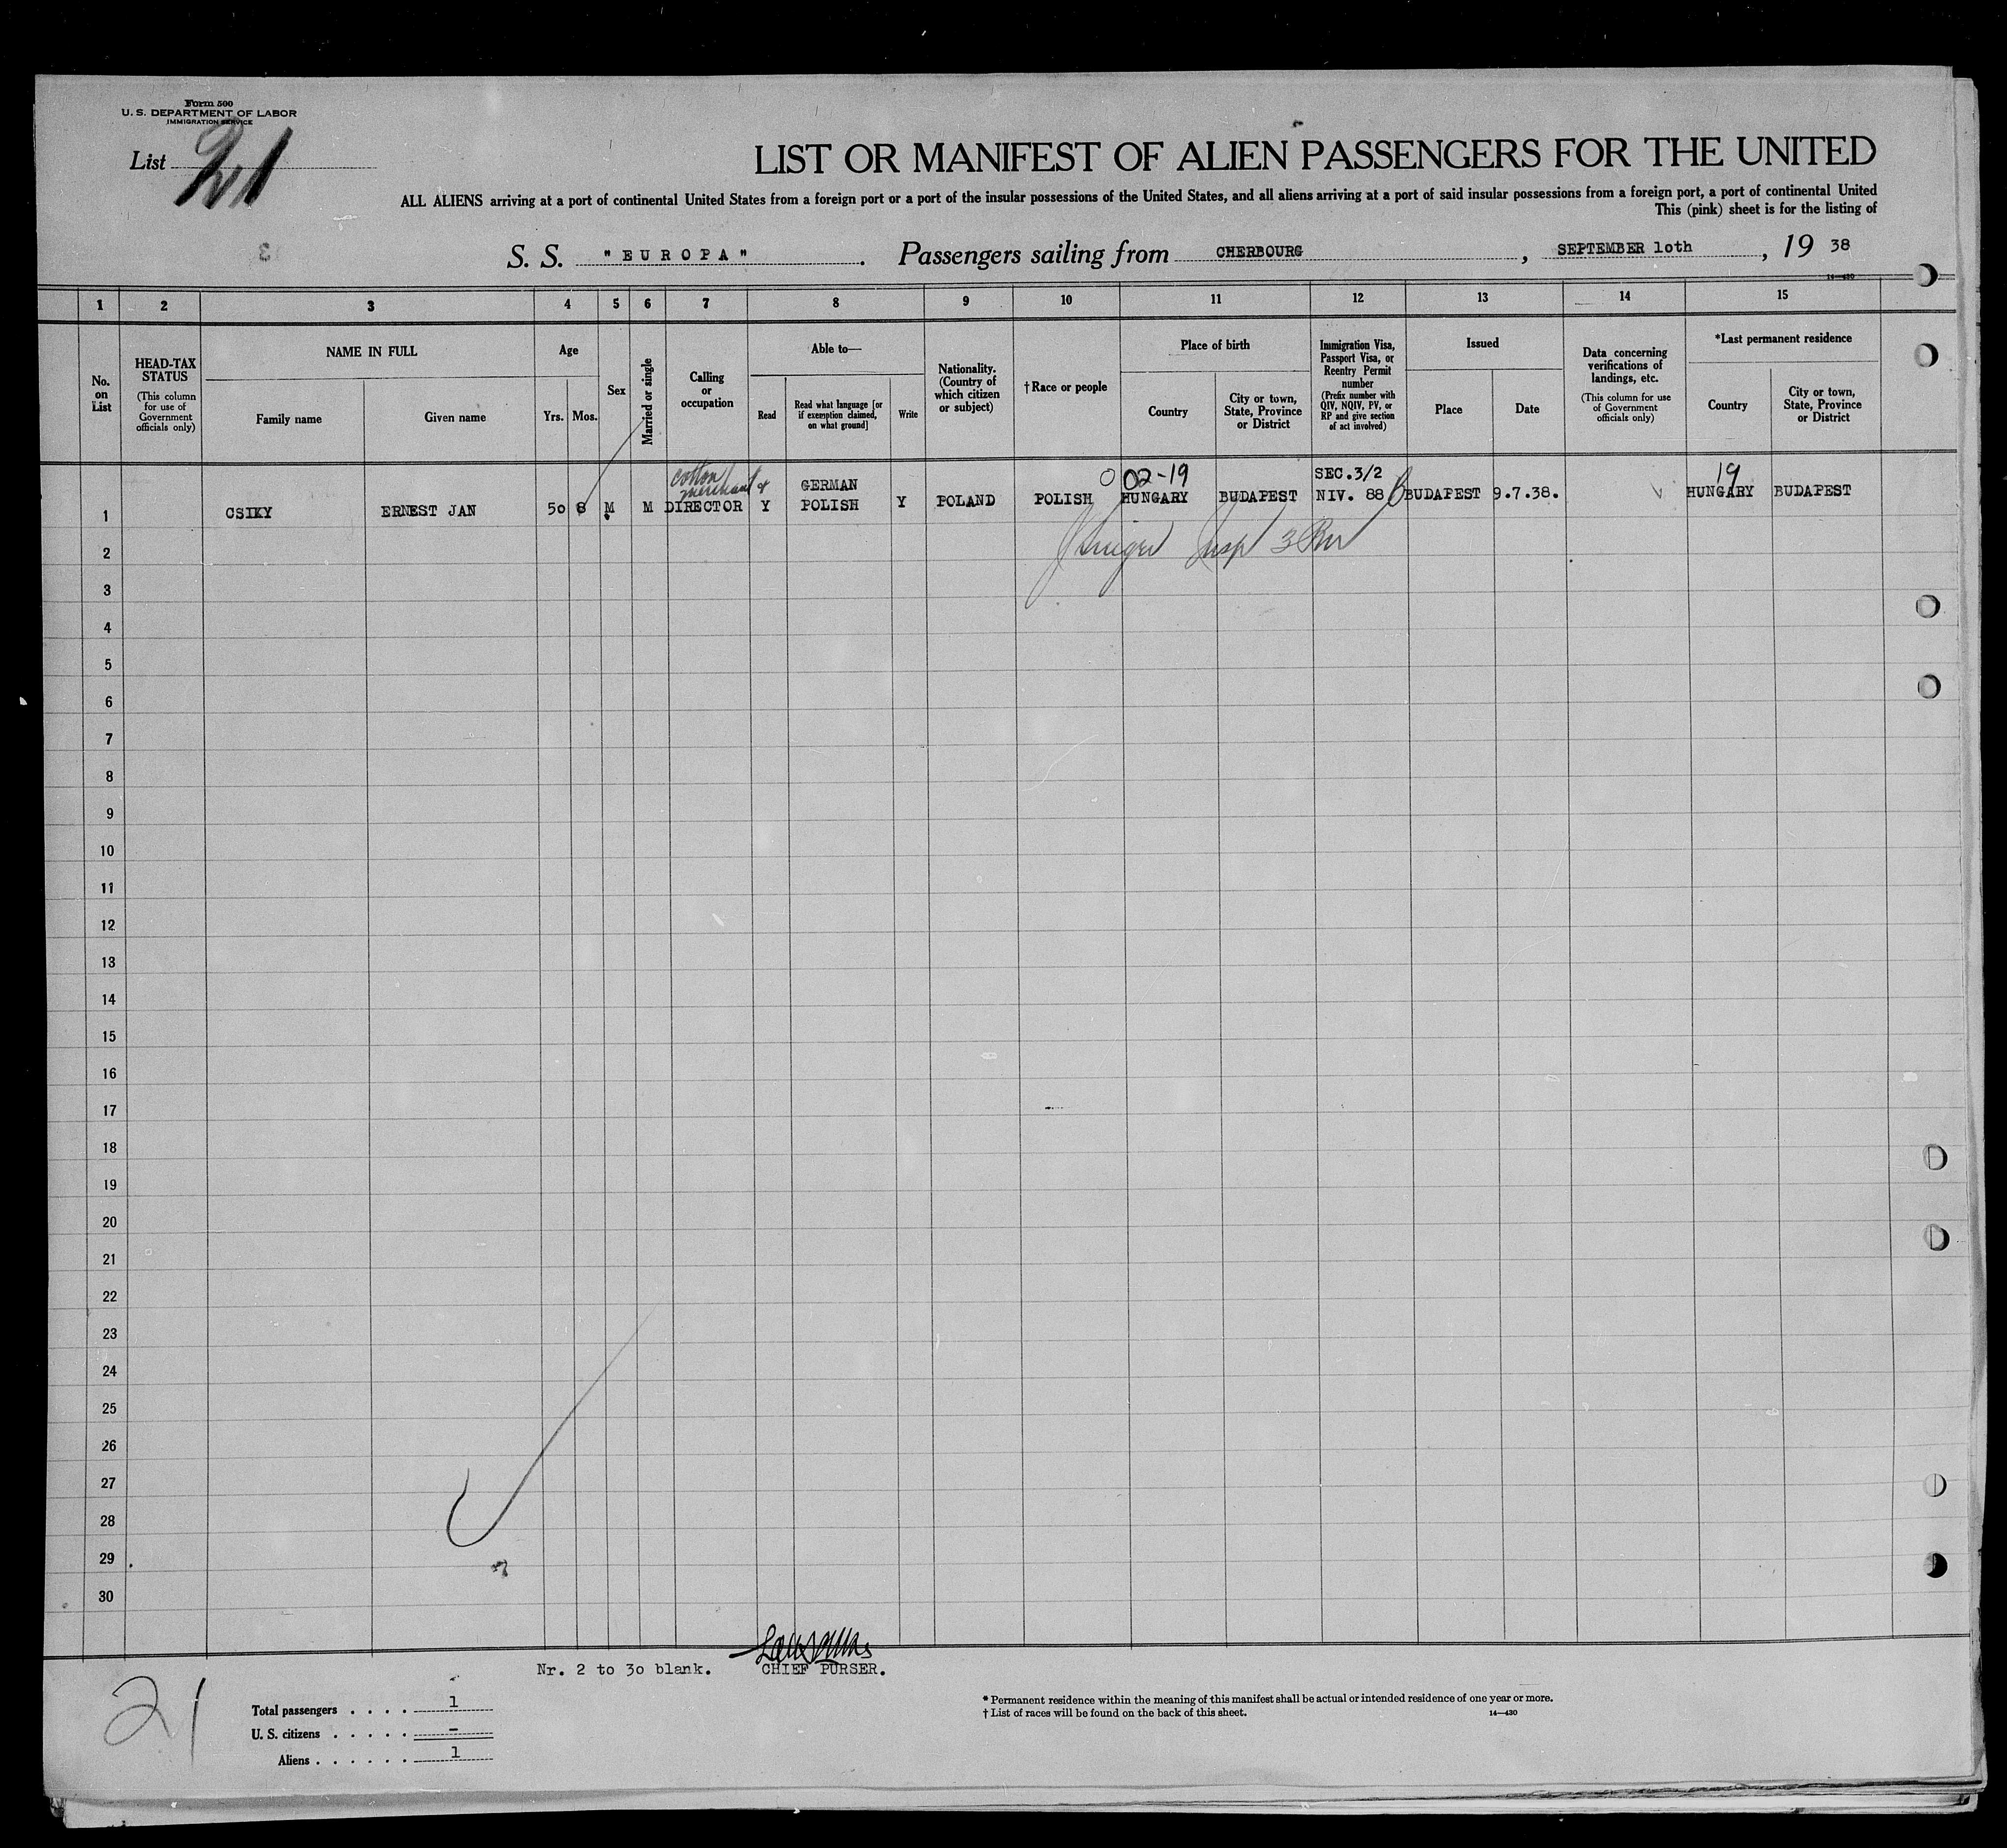 Form 500
U. S. DEPARTMENT OF LABOR
IMMIGRATION SERVICE
List 21
LIST OR MANIFEST OF ALIEN PASSENGERS FOR THE UNITED
ALL ALIENS arriving at a port of continental United States from a foreign port or a port of the insular possessions of the United States, and all aliens arriving at a port of said insular possessions from a foreign port, a port of continental United
This (pink) sheet is for the listing of
S. S. "EUROPA". Passengers sailing from CHERBOURG, SEPTEMBER 1oth, 19 38
14—430
1 2 3 4 5 6 7 8 9 10 11 12 13 14 15
No. on List
HEAD-TAX STATUS
(This column for use of Government officials only)
NAME IN FULL
Family name
Given name
Age
Yrs. Mos.
Sex
Married or single
Calling or occupation
Able to—
Read
Read what language [or if exemption claimed, on what ground]
Write
Nationality. (Country of which citizen or subject)
†Race or people
Place of birth
Country
City or town, State, Province or District
Immigration Visa, Passport Visa, or Reentry Permit number
(Prefix number with QIV, NQIV, PV, or RP and give section of act involved)
Issued
Place
Date
Data concerning verifications of landings, etc.
(This column for use of Government officials only)
*Last permanent residence
Country
City or town, State, Province or District
cotton merchant &
GERMAN
02-19
SEC.3/2
19
1 CSIKY ERNEST JAN 5o 8 M M DIRECTOR Y POLISH Y POLAND POLISH HUNGARY BUDAPEST NIV. 88 BUDAPEST 9.7.38. HUNGARY BUDAPEST
2
3
4
5
6
7
8
9
10
11
12
13
14
15
16
17
18
19
20
21
22
23
24
25
26
27
28
29
30
Nr. 2 to 3o blank. CHIEF PURSER.
21
Total passengers . . . . 1
U. S. citizens . . . . . –
Aliens . . . . . . 1
* Permanent residence within the meaning of this manifest shall be actual or intended residence of one year or more.
† List of races will be found on the back of this sheet.
14—430